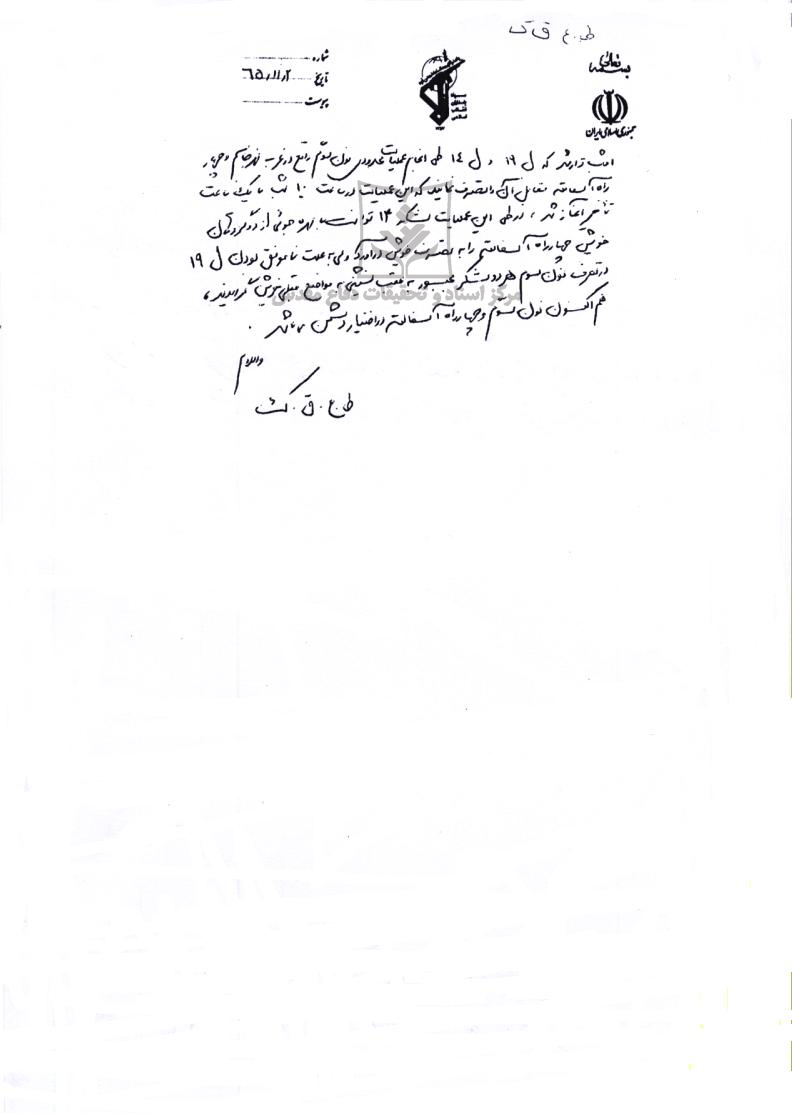 ط.ع ق ک
بسمه تعالی
جمهوری اسلامی ایران
شماره
تاریخ ۶۵
پیوست
امشب قرار شد که ل ۱۹ و ل ۱۴ طی انجام عملیات محدودی نون سوم واقع در غرب نهر جاسم و چهار
راه آسفالته مقابل آن را تصرف نمایند که این عملیات در ساعت ۱۰ شب با یک ساعت
تأخیر آغاز شد ، در طی این عملیات لشکر ۱۴ توانست با بهره جوئی از دو گردان
خویش چهارراه آسفالته را به تصرف خویش درآورد ولی به علت ناموفق بودن ل ۱۹
در تصرف نون سوم هر دو لشکر مجبور به عقب نشینی به مواضع قبلی خویش گردیدند ،
هم اکنون نون سوم و چهارراه آسفالته در اختیار دشمن می باشد .
والسلام
ط.ع.ق.ک
مرکز اسناد و تحقیقات دفاع مقدس